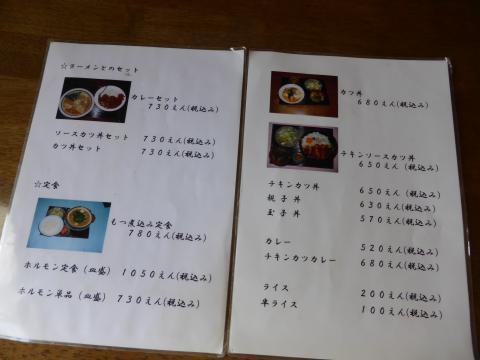 ☆ラーメンとのセット
カレーセット
730えん(税込み)
ソースカツ丼セット 730えん(税込み)
カツ丼セット 730えん(税込み)
☆定食
もつ煮込み定食
780えん(税込み)
ホルモン定食(皿盛) 1050えん(税込み)
ホルモン単品(皿盛) 730えん(税込み)
カツ丼
680えん(税込み)
チキンソースカツ丼
650えん(税込み)
チキンカツ丼 650えん(税込み)
親子丼 630えん(税込み)
玉子丼 570えん(税込み)
カレー 520えん(税込み)
チキンカツカレー 680えん(税込み)
ライス 200えん(税込み)
半ライス 100えん(税込み)